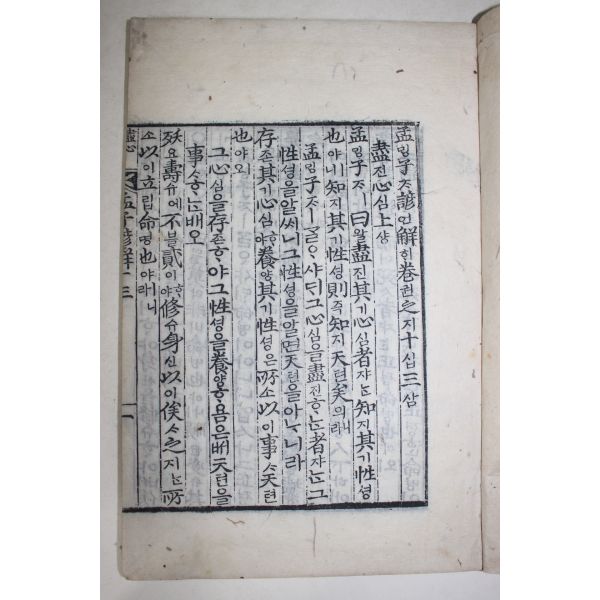 孟ᄆᆡᆼ子ᄌᆞ諺언解ᄒᆡ卷권之지十십三삼
盡진心심上샹
孟ᄆᆡᆼ子ᄌᆞㅣ曰왈盡진其기心심者쟈ᄂᆞᆫ知지其기性셩
也야ㅣ니知지其기性셩則즉知지天텬矣의라니
孟ᄆᆡᆼ子ᄌᆞㅣᄀᆞᆯᄋᆞ샤ᄃᆡ그心심을盡진ᄒᆞᄂᆞᆫ者쟈ᄂᆞᆫ그
性셩을알ᄭᅵ니그性셩을알면天텬을아ᄂᆞ니라
存존其기心심ᄒᆞ야養양其기性셩은所소以이事ᄉᆞ天텬
也야ㅣ오
그心심을存존ᄒᆞ야그性셩을養양ᄒᆞ욤은ᄡᅥ天텬을
事ᄉᆞᄒᆞᄂᆞᆫ배오
殀요壽슈에不블貳이ᄒᆞ야修슈身신以이俟ᄉᆞ之지ᄂᆞᆫ所
소以이立립命명也야ㅣ라니
盡心 孟子諺解十三 一